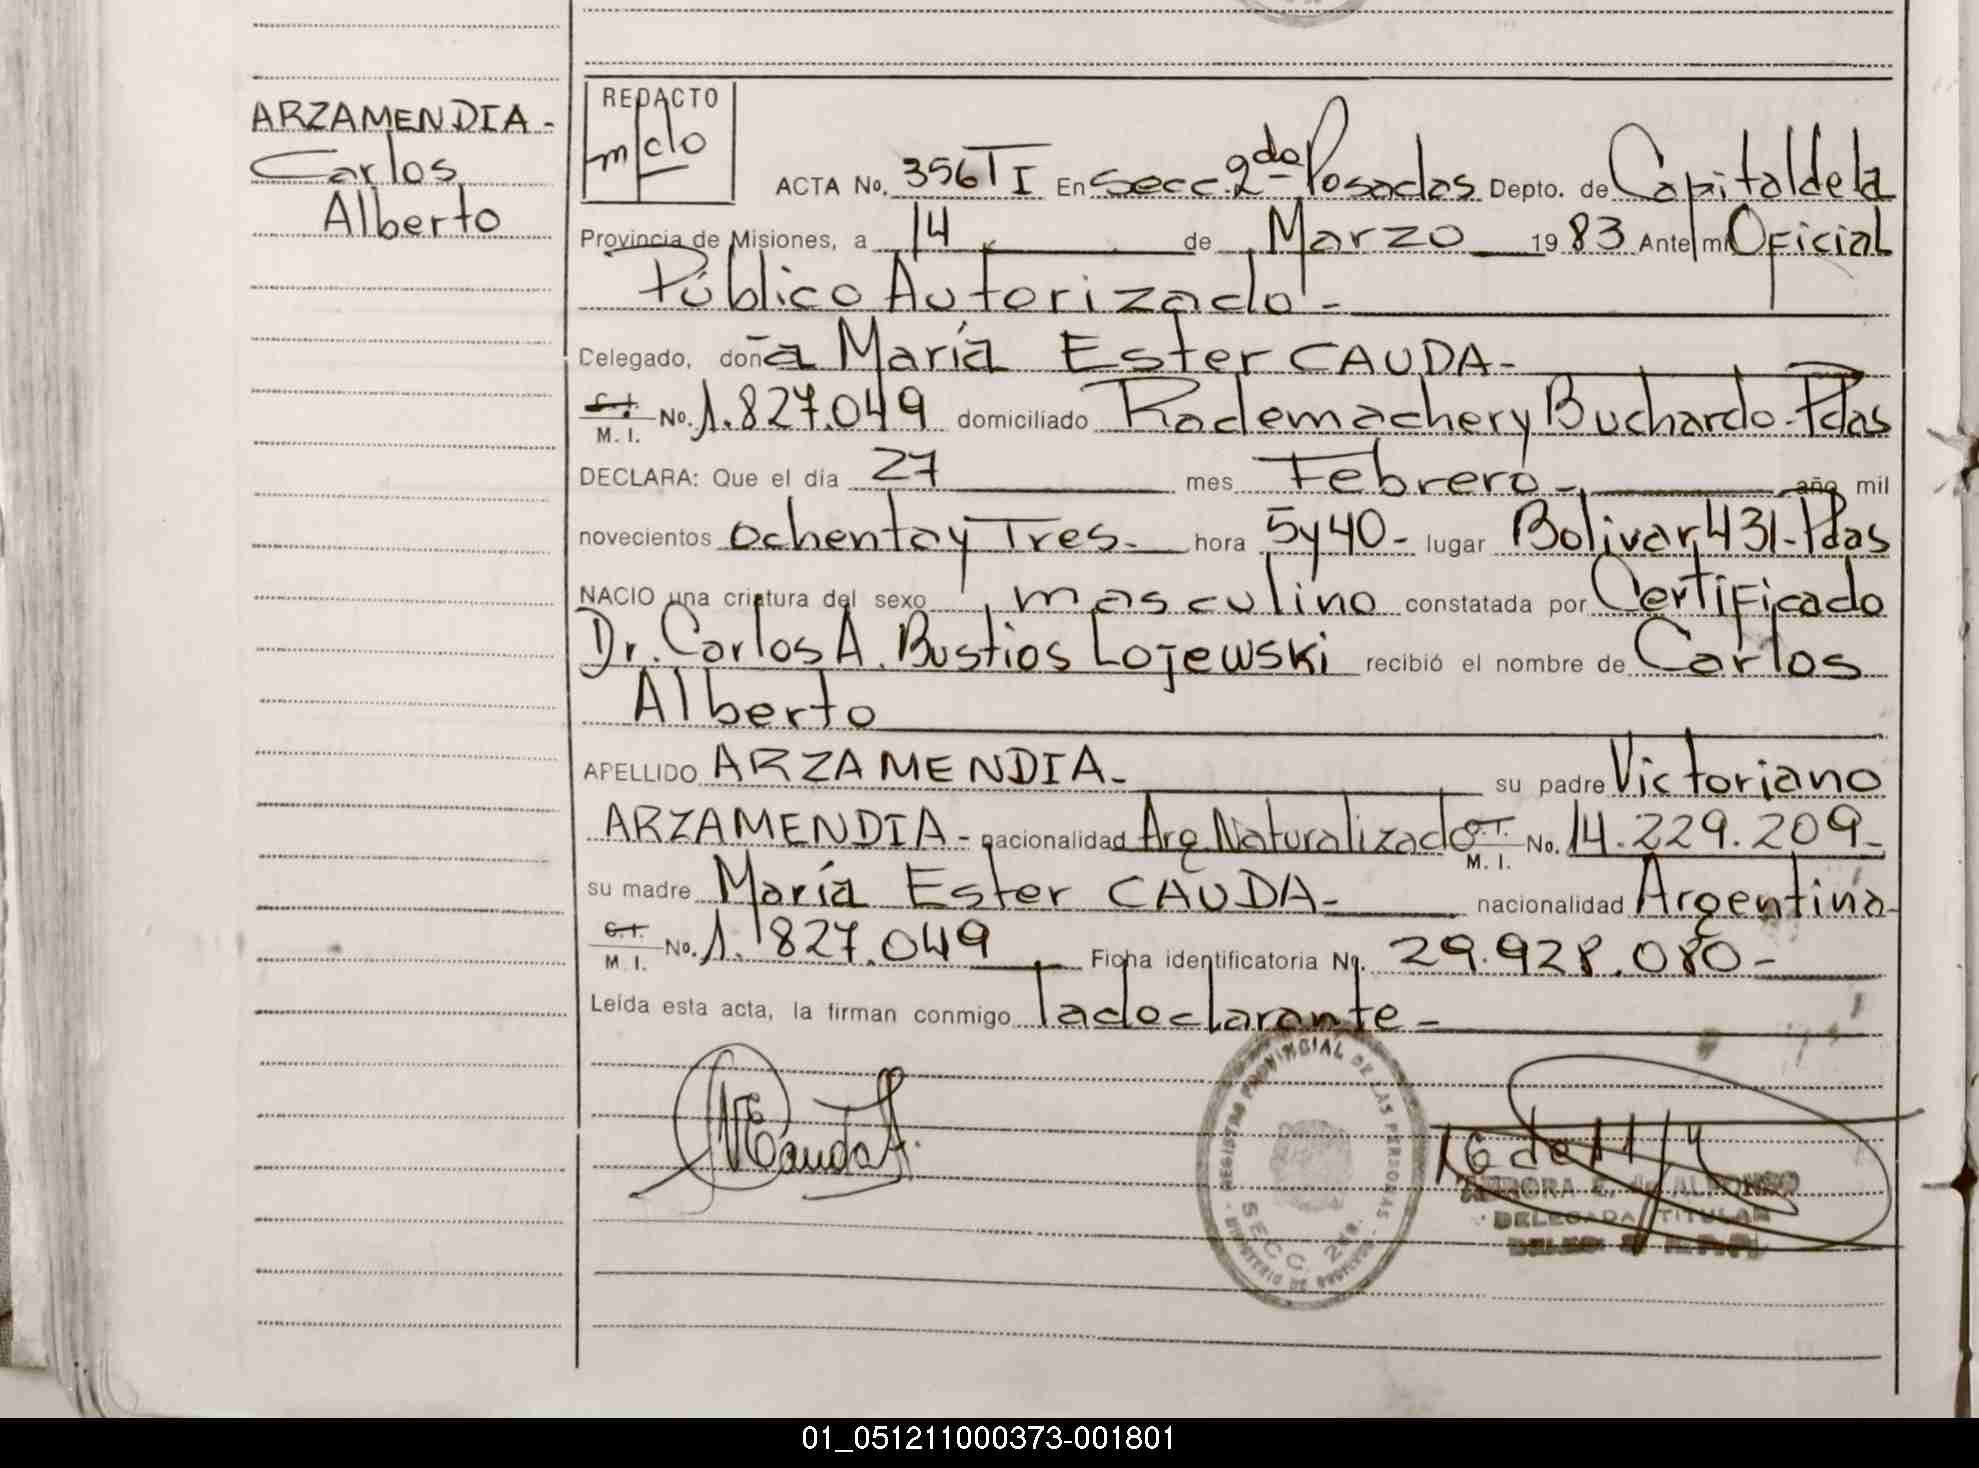 ARZAMENDIA-
Carlos
Alberto
REDACTO
ACTA No. 356 T I En Secc. 2da Posadas Depto. de Capital de la
Provincia de Misiones, a 14 de Marzo 1983 Ante mi Oficial
Público Autorizado-
Celegado, doña María Ester CAUDA-
C.I. M. I. No. 1.827.049 domiciliado Rademacher y Buchardo-Pdas
DECLARA: Que el día 27 mes Febrero- año mil
novecientos ochenta y Tres- hora 5 y 40- lugar Bolivar 431-Pdas
NACIO una criatura del sexo masculino constatada por Certificado
Dr. Carlos A. Bustios Lojewski recibió el nombre de Carlos
Alberto
APELLIDO ARZAMENDIA- su padre Victoriano
ARZAMENDIA- nacionalidad Arg. Naturalizado C.I. M. I. No. 14.229.209-
su madre María Ester CAUDA- nacionalidad Argentina-
C.I. M. I. No. 1.827.049 Ficha identificatoria No. 29.928.080-
Leída esta acta, la firman conmigo la declarante-
MECauda A.
REGISTRO PROVINCIAL DE LAS PERSONAS
SECC. 2da.
DELEGADA TITULAR
01_051211000373-001801